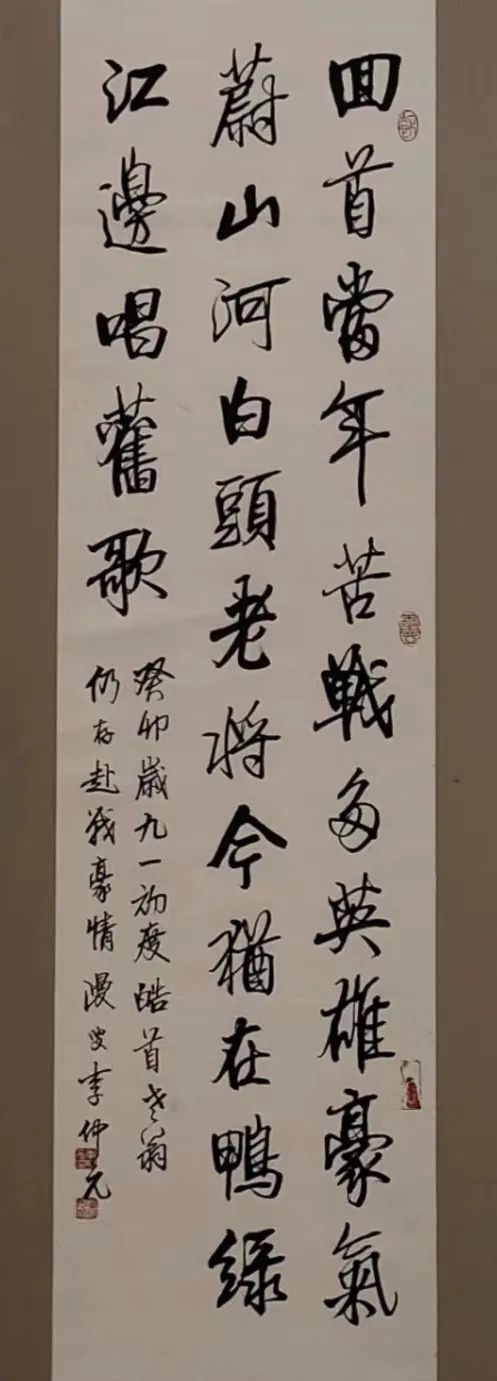 回首當年苦戰多英雄豪氣
蔚山河白頭老將今猶在鴨緑
江邊唱舊歌
癸卯歲九一初度皓首老翁
仍存赴戰豪情漫叟李仲元